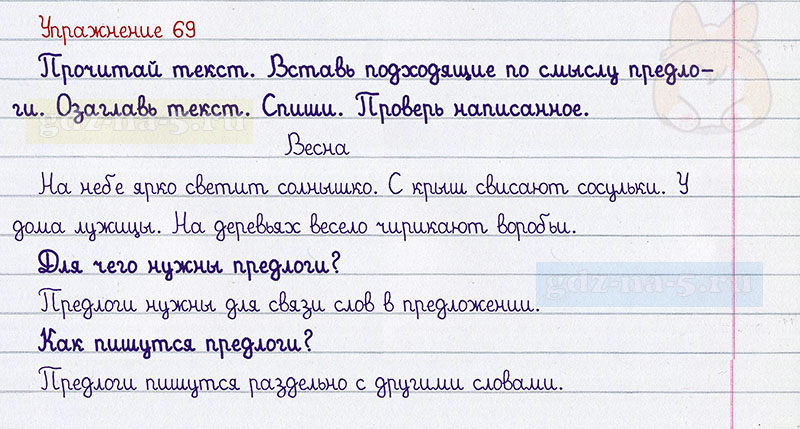 Упражнение 69
Прочитай текст. Вставь подходящие по смыслу предло-
ги. Озаглавь текст. Спиши. Проверь написанное.
gdz-na-5.ru
Весна
На небе ярко светит солнышко. С крыш свисают сосульки. У
дома лужицы. На деревьях весело чирикают воробьи.
Для чего нужны предлоги?
gdz-na-5.ru
Предлоги нужны для связи слов в предложении.
Как пишутся предлоги?
Предлоги пишутся раздельно с другими словами.